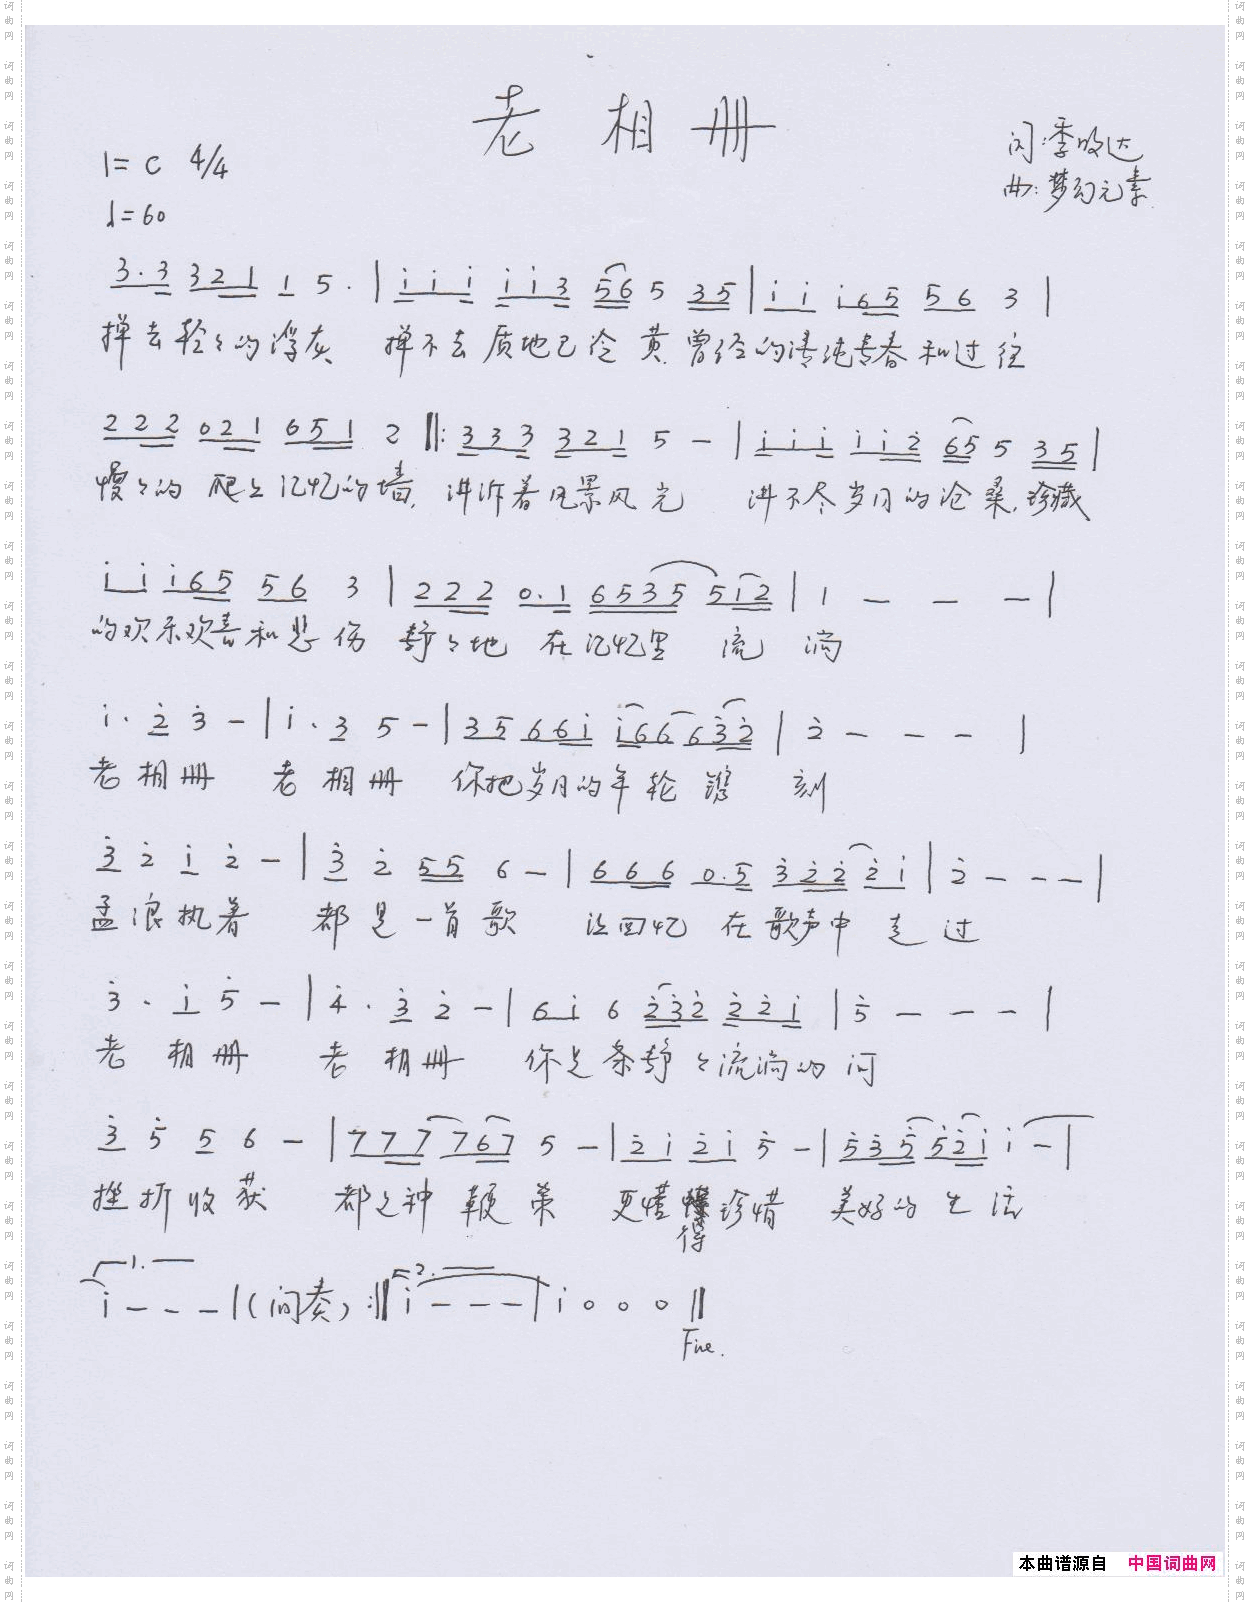 老相册
1=C 4/4
词:季收达
曲:梦幻元素
♩=60
3·3 321 1 5· | i i i i i 3 56 5 35 | i i i65 56 3 |
掸去轻轻的浮灰 掸不去质地已沧黄 曾经的清纯青春和过往
222 021 651 2 ‖: 333 321 5 - | i i i i i 2 65 5 35 |
慢慢的 爬上记忆的墙, 讲诉着风景风光 讲不尽岁月的沧桑,珍藏
i i i65 56 3 | 222 0·1 6535 5i2 | 1 - - - |
的欢乐欢喜和悲伤 静静地 在记忆里 流淌
i· 2 3 - | i· 3 5 - | 35 66i i66 632 | 2 - - - |
老相册 老相册 你把岁月的年轮镌刻
3 2 i 2 - | 3 2 55 6 - | 666 0·5 322 2i | 2 - - - |
孟浪执着 都是一首歌 让回忆 在歌声中走过
3· i 5 - | 4· 3 2 - | 6i 6 232 22i | 5 - - - |
老相册 老相册 你是条静静流淌的河
3 5 5 6 - | 777 767 5 - | 2i 2i 5 - | 535 52i i - |
挫折收获 都是种鞭策 更懂得珍惜 美好的生活
1.
2.
i - - - | (间奏) :‖ i - - - | i 0 0 0 ‖
Fine.
本曲谱源自 中国词曲网
词曲网